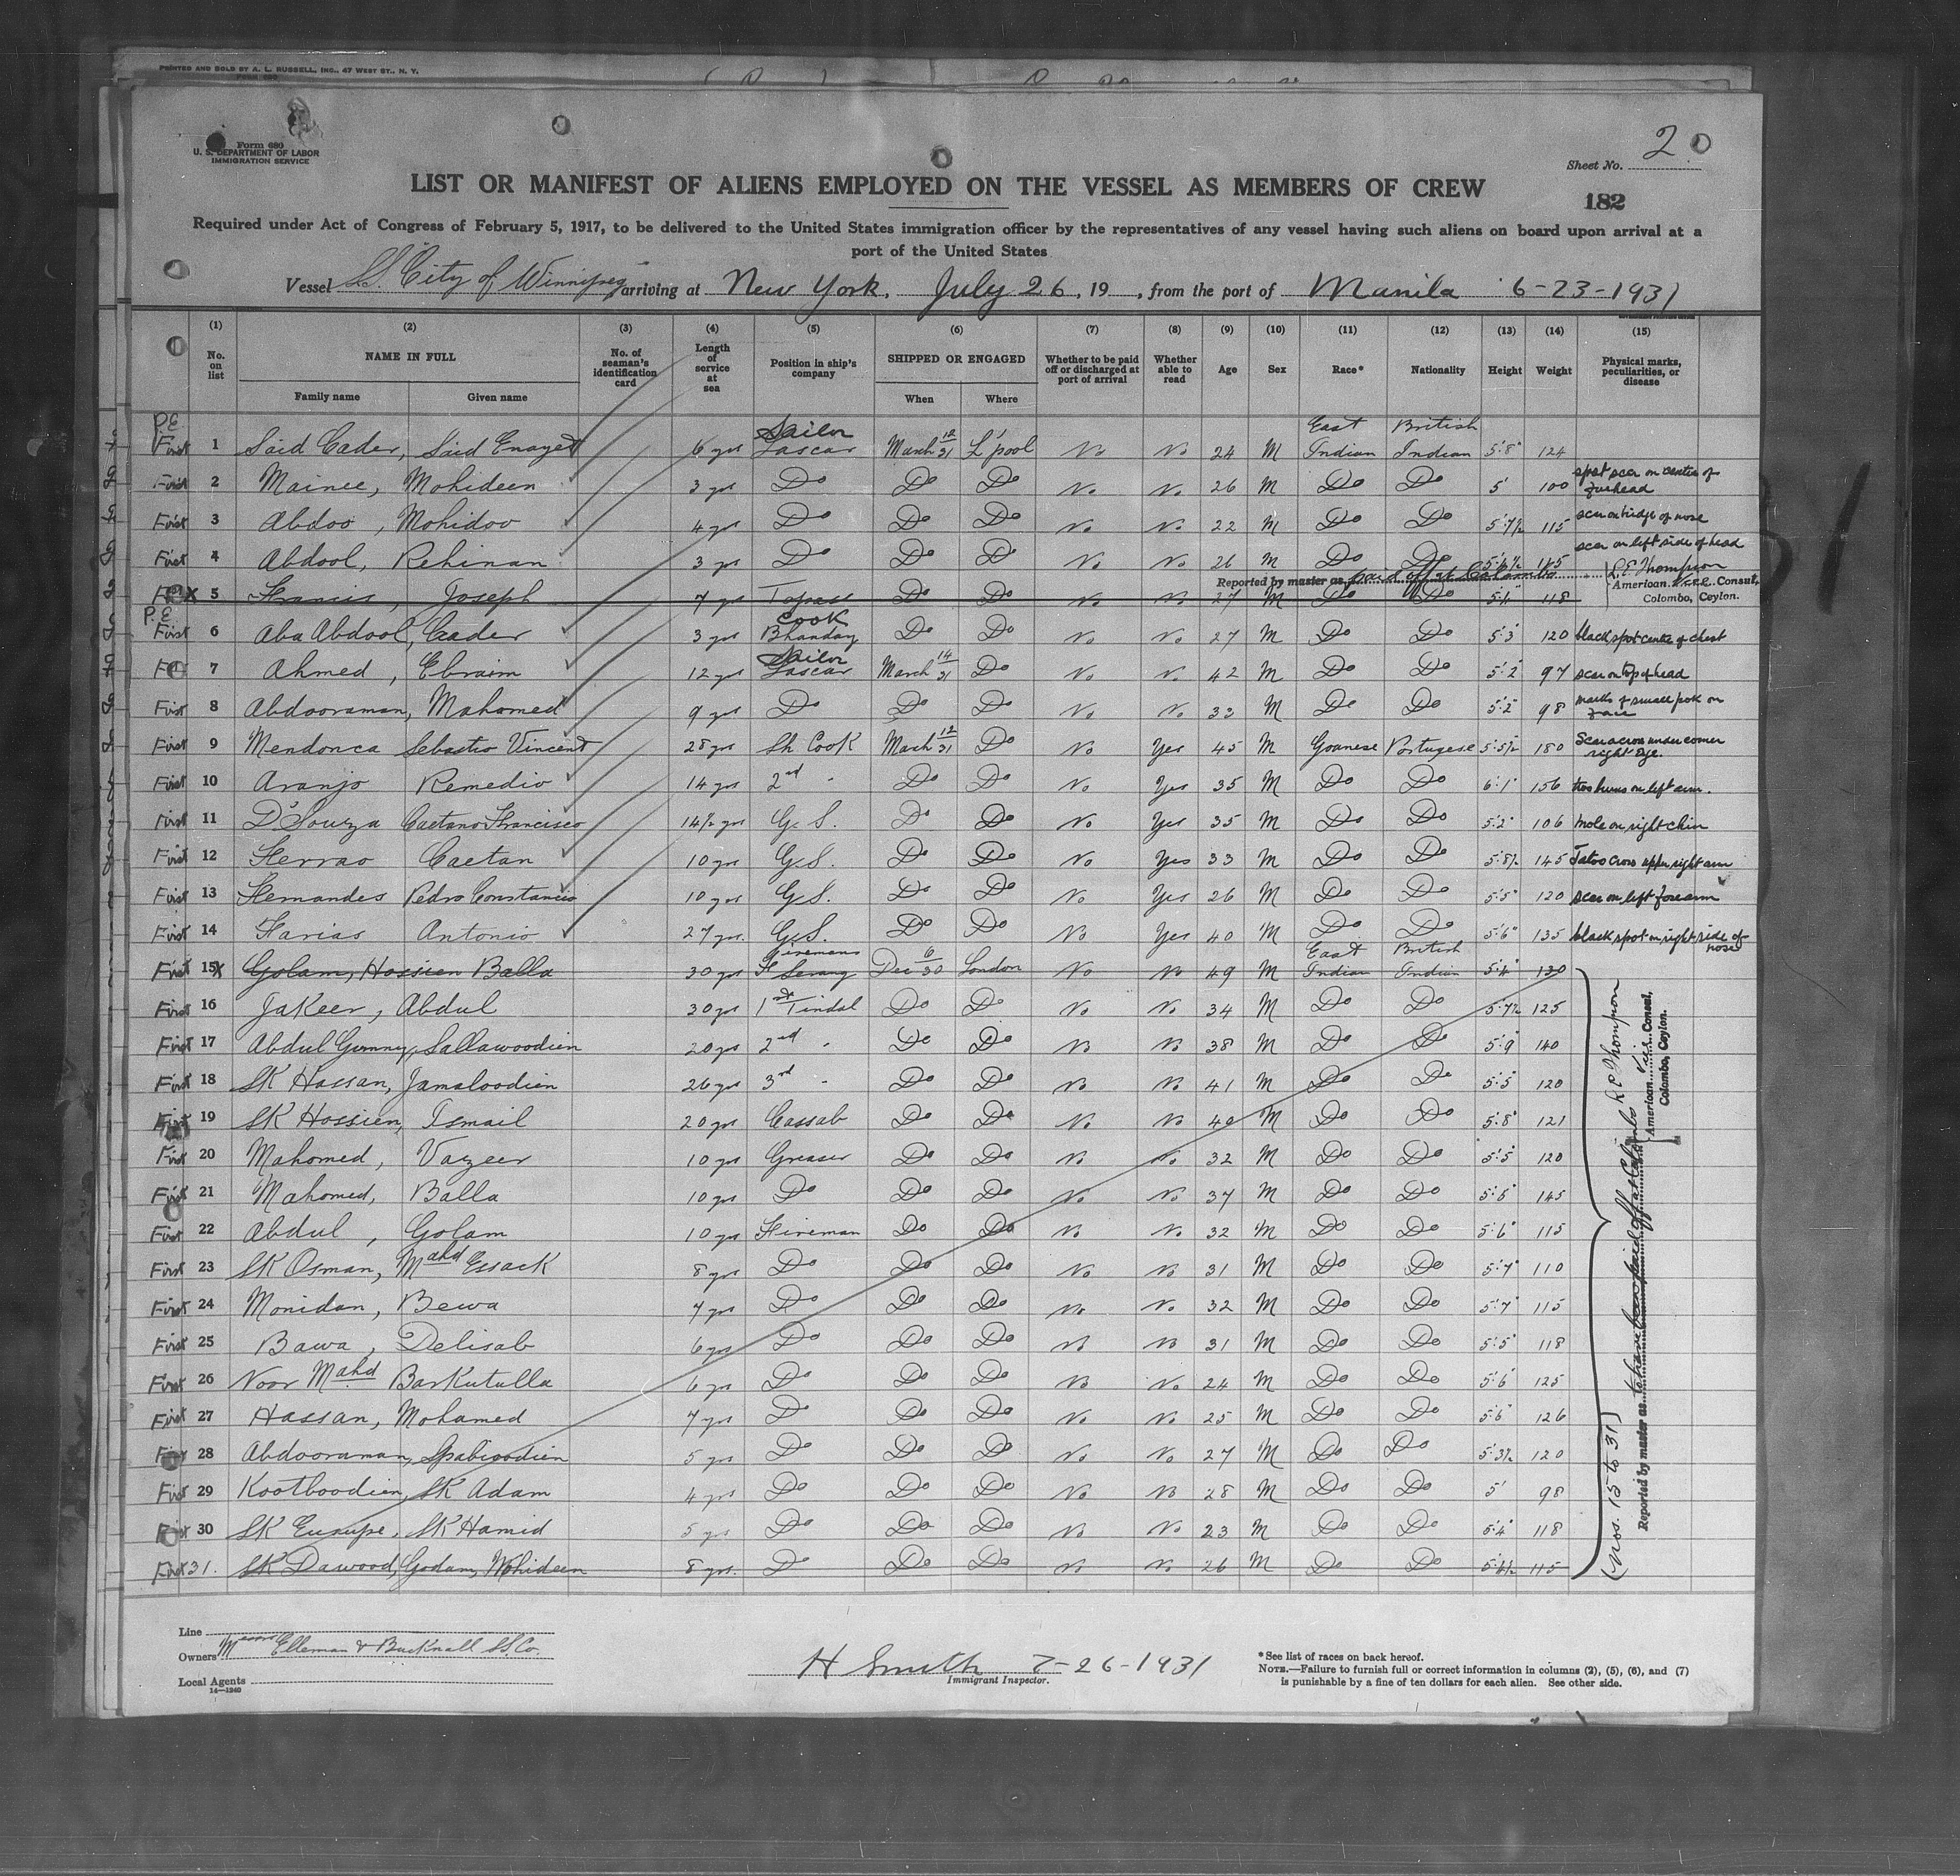 PRINTED AND SOLD BY A. L. RUSSELL, INC., 47 WEST ST., N. Y.
Form 680
U. S. DEPARTMENT OF LABOR
IMMIGRATION SERVICE
Sheet No. 2
182
LIST OR MANIFEST OF ALIENS EMPLOYED ON THE VESSEL AS MEMBERS OF CREW
Required under Act of Congress of February 5, 1917, to be delivered to the United States immigration officer by the representatives of any vessel having such aliens on board upon arrival at a
port of the United States
Vessel SS. City of Winnipeg arriving at New York, July 26, 19 , from the port of Manila 6-23-1931
(1) (2) (3) (4) (5) (6) (7) (8) (9) (10) (11) (12) (13) (14) (15)
No. on list NAME IN FULL Family name Given name No. of seaman's identification card Length of service at sea Position in ship's company SHIPPED OR ENGAGED When Where Whether to be paid off or discharged at port of arrival Whether able to read Age Sex Race* Nationality Height Weight Physical marks, peculiarities, or disease
P.E.
First 1 Said Cader, Said Enayet 6 yrs Sailor Lascar March 12/31 L'pool No No 24 M East Indian British Indian 5'8" 124
First 2 Mainee, Mohideen 3 yrs Do Do Do No No 26 M Do Do 5' 100 spot scar on centre of forehead
First 3 Abdoo, Mohidoo 4 yrs Do Do Do No No 22 M Do Do 5'7½ 115 scar on bridge of nose
First 4 Abdool, Rehinan 3 yrs Do Do Do No No 26 M Do Do 115 scar on left side of head
Reported by master as paid off at Colombo R.E. Thompson
American Vice Consul,
Colombo, Ceylon.
x 5 Francis, Joseph 7 yrs Topass Do Do No No 27 M Do Do 5'4" 118
P.E.
First 6 Aba Abdool, Cader 3 yrs Cook Bhanday Do Do No No 27 M Do Do 5'3" 120 black spot centre of chest
7 Ahmed, Ebraim 12 yrs Sailor Lascar March 14/31 Do No No 42 M Do Do 5'2" 97 scar on top of head
First 8 Abdooraman, Mahomed 9 yrs Do Do Do No No 33 M Do Do 5'2" 98 marks of small pok on face
First 9 Mendonca Sebastio Vincent 28 yrs Sh Cook March 12/31 Do No Yes 45 M Goanese Portugese 5'5½ 180 Scar across under corner right Eye.
First 10 Aranjo Remedio 14 yrs 2nd " Do Do No Yes 35 M Do Do 6'1" 156 two burns on left arm.
First 11 D'Souza Caetano Francisco 14½ yrs G. S. Do Do No Yes 35 M Do Do 5'2" 106 mole on right chin
First 12 Ferrao Caetan 10 yrs G.S. Do Do No Yes 33 M Do Do 5'8½ 145 Tatoo cross upper right arm
First 13 Fernandes Pedro Constancio 10 yrs G.S. Do Do No Yes 26 M Do Do 5'5" 120 scar on left forearm
First 14 Farias Antonio 27 yrs. G.S. Do Do No Yes 40 M Do Do 5'6" 135 black spot on right side of nose
First 15x Golam, Hossien Balla 30 yrs Firemans Serang Dec 6/30 London No No 49 M East Indian British Indian 5'4" 130
First 16 Jakeer, Abdul 30 yrs 1st Tindal Do Do No No 34 M Do Do 5'7½ 125
First 17 Abdul Gunny, Sallawoodien 20 yrs 2nd " Do Do No No 38 M Do Do 5'9" 140
First 18 SK Hassan, Jamaloodien 26 yrs 3rd " Do Do No No 41 M Do Do 5'5" 120
First 19 SK Hossien, Ismail 20 yrs Cassab Do Do No No 40 M Do Do 5'8" 121
First 20 Mahomed, Vazeer 10 yrs Greaser Do Do No No 32 M Do Do 5'5" 120
First 21 Mahomed, Balla 10 yrs Do Do Do No No 37 M Do Do 145
First 22 Abdul, Golam 10 yrs Fireman Do Do No No 32 M Do Do 5'6" 115
First 23 SK Osman, Mahd Essack 8 yrs Do Do Do No No 31 M Do Do 5'7" 110
First 24 Monidan, Bewa 7 yrs Do Do Do No No 32 M Do Do 5'7" 115
First 25 Bawa, Delisab 6 yrs Do Do Do No No 31 M Do Do 5'5" 118
First 26 Noor Mahd Barkutulla 6 yrs Do Do Do No No 24 M Do Do 5'6" 125
First 27 Hassan, Mohamed 7 yrs Do Do Do No No 25 M Do Do 5'6" 126
First 28 Abdooraman, 5 yrs Do Do Do No No 27 M Do Do 5'3½ 120
First 29 Kootboodien, SK Adam 4 yrs Do Do Do No No 28 M Do Do 5' 98
First 30 SK Eusupe, SK Hamid 5 yrs Do Do Do No No 23 M Do Do 5'4" 118
First 31. SK Dawood, Godam, Mohideen 8 yrs. Do Do Do No No 26 M Do Do 5'4½ 115
(Nos. 15 to 31)
Reported by master as to have been paid off at Colombo R E Thompson
American Vice Consul,
Colombo, Ceylon.
Line
Owners Messrs Elleman & Bucknall SS. Co.
Local Agents
14—1240
H Smith 7-26-1931
Immigrant Inspector.
*See list of races on back hereof.
NOTE.—Failure to furnish full or correct information in columns (2), (5), (6), and (7)
is punishable by a fine of ten dollars for each alien. See other side.